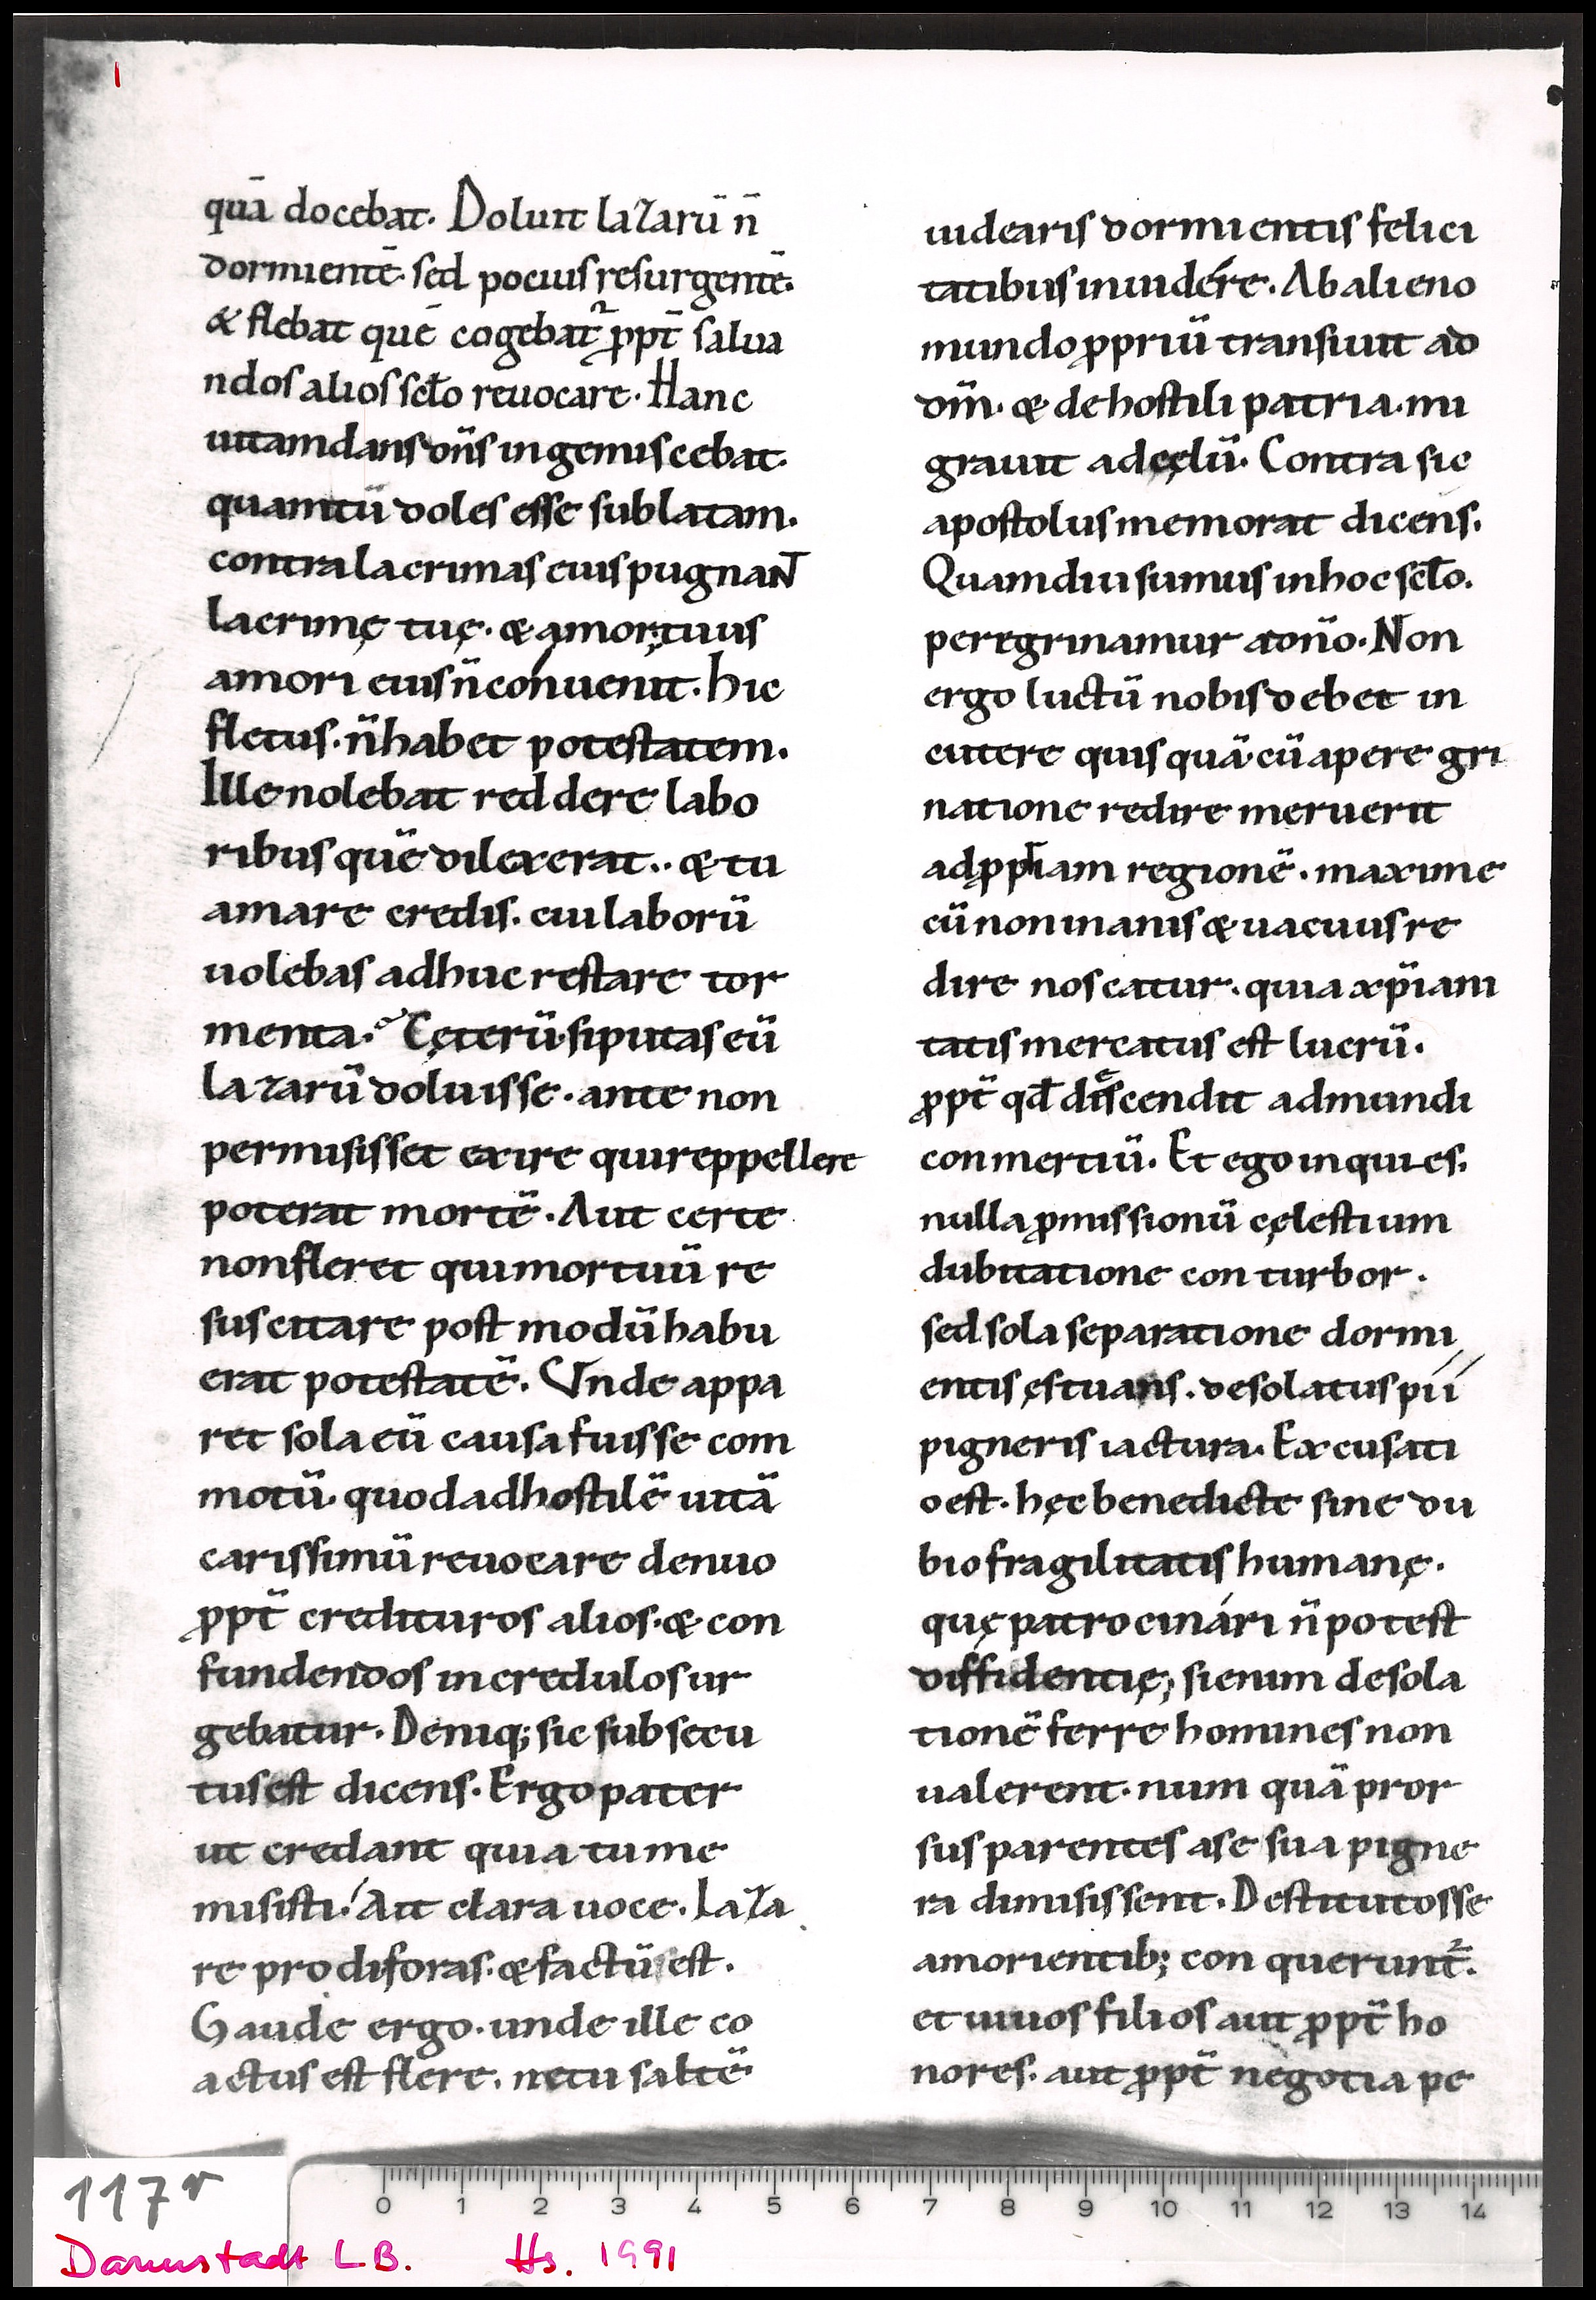 quā docebat. Doluit lazarū n̄
dormientē. sed pocius resurgentē.
& flebat quē cogebat᷑ ꝓpt̄ salua
ndos alios sc̄lo reuocare. Hanc
uitam dans dn̄s ingemiscebat.
quam tū doles esse sublatam.
contra lacrimas eius pugnaNT̄
lacrimę tuę. & amor tuus
amori eius n̄ conuenit. hic
fletus. n̄ habet potestatem.
Ille nolebat reddere labo
ribus quē dilexerat.. & tu
amare credis. cui laborū
uolebas adhuc restare tor
menta. Cęterū. si putas eū
lazarū doluisse. ante non
permisisset exire qui reppellere
poterat mortē. Aut certe
non fleret qui mortuū re
suscitare post modū habu
erat potestatē. Vnde appa
ret sola eū causa fuisse com
motū. quod ad hostilē uitā
carissimū reuocare denuo
ꝓpt̄ credituros alios. & con
fundendos incredulos ur
gebatur. Deniq; sic subsecu
tus est dicens. Ergo pater
ut credant quia tu me
misisti. Ait clara uoce. Laza
re prodi foras. & factū est.
Gaude ergo. unde ille co
actus est flere. ne tu saltē
uidearis dormientis felici
tatibus inuidére. Ab alieno
mundo ꝓpriū transiuit ad
dm̄. & de hostili patria. mi
grauit ad cęlū. Contra sic
apostolus memorat dicens.
Quamdiu sumus in hoc sc̄lo.
peregrinamur a dn̄o. Non
ergo luctū nobis debet in
cutere quisquā. cū a peregri
natione redire meruerit
ad ꝓpriam regionē. maxime
cū non inanis & uacuus re
dire noscatur. quia xp̄iani
tatis mercatus est lucrū.
ꝓpt̄ qd̄ discendit ad mundi
conmertiū. Et ego inquies.
nulla ꝓmissionū cęlestium
dubitatione conturbor.
sed sola separatione dormi
entis ęstuans. desolatus pii
pigneris iactura. Excusati
o est. hęc benedicte sine du
bio fragilitatis humanę.
quę patrocinári n̄ potest
diffidentię; si enim desola
tionē ferre homines non
ualerent. num quā pror
sus parentes a se sua pigne
ra dimisissent. Destitutos se
a morientib; con querunt᷑.
et uiuos filios aut ꝓpt̄ ho
nores. aut ꝓpt̄ negotia pe
117r
0 1 2 3 4 5 6 7 8 9 10 11 12 13 14
Darmstadt L.B. Hs. 1991